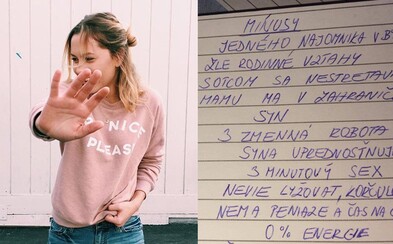 NICE
PLEASE
MÍNUSY
JEDNÉHO NÁJOMNÍKA V B
ZLÉ RODINNÉ VZŤAHY
S OTCOM SA NESTRETÁVA
MAMU MA V ZAHRANIČ
SYN
3 ZMENNÁ ROBOTA
SYNA UPREDNOSTŇUJ
3 MINUTOVÝ SEX
NEVIE LYŽOVAŤ, KORČUĽ
NEMÁ PENIAZE A ČAS NA
0% ENERGIE